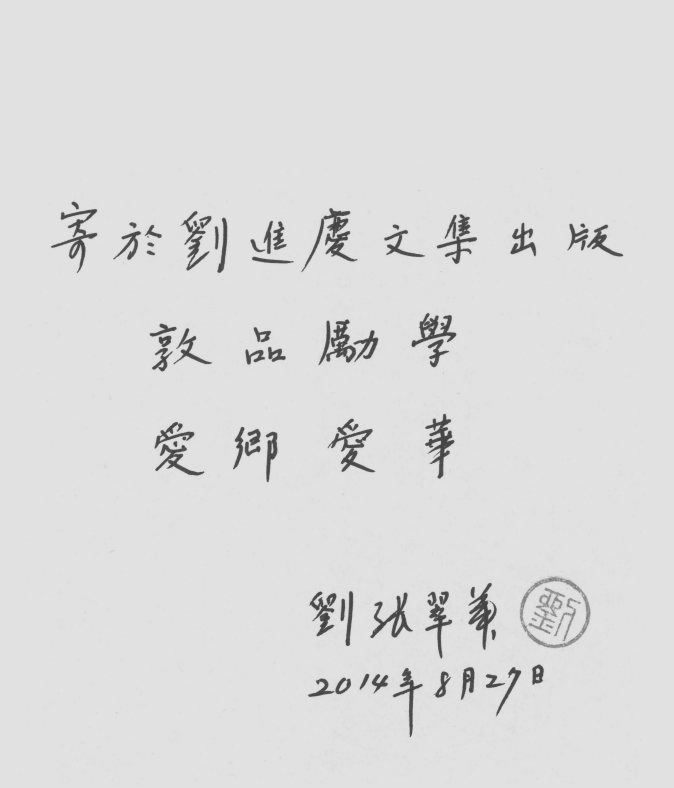 寄於劉進慶文集出版
敦品勵學
愛鄉愛華
劉張翠華
劉
2014年8月27日